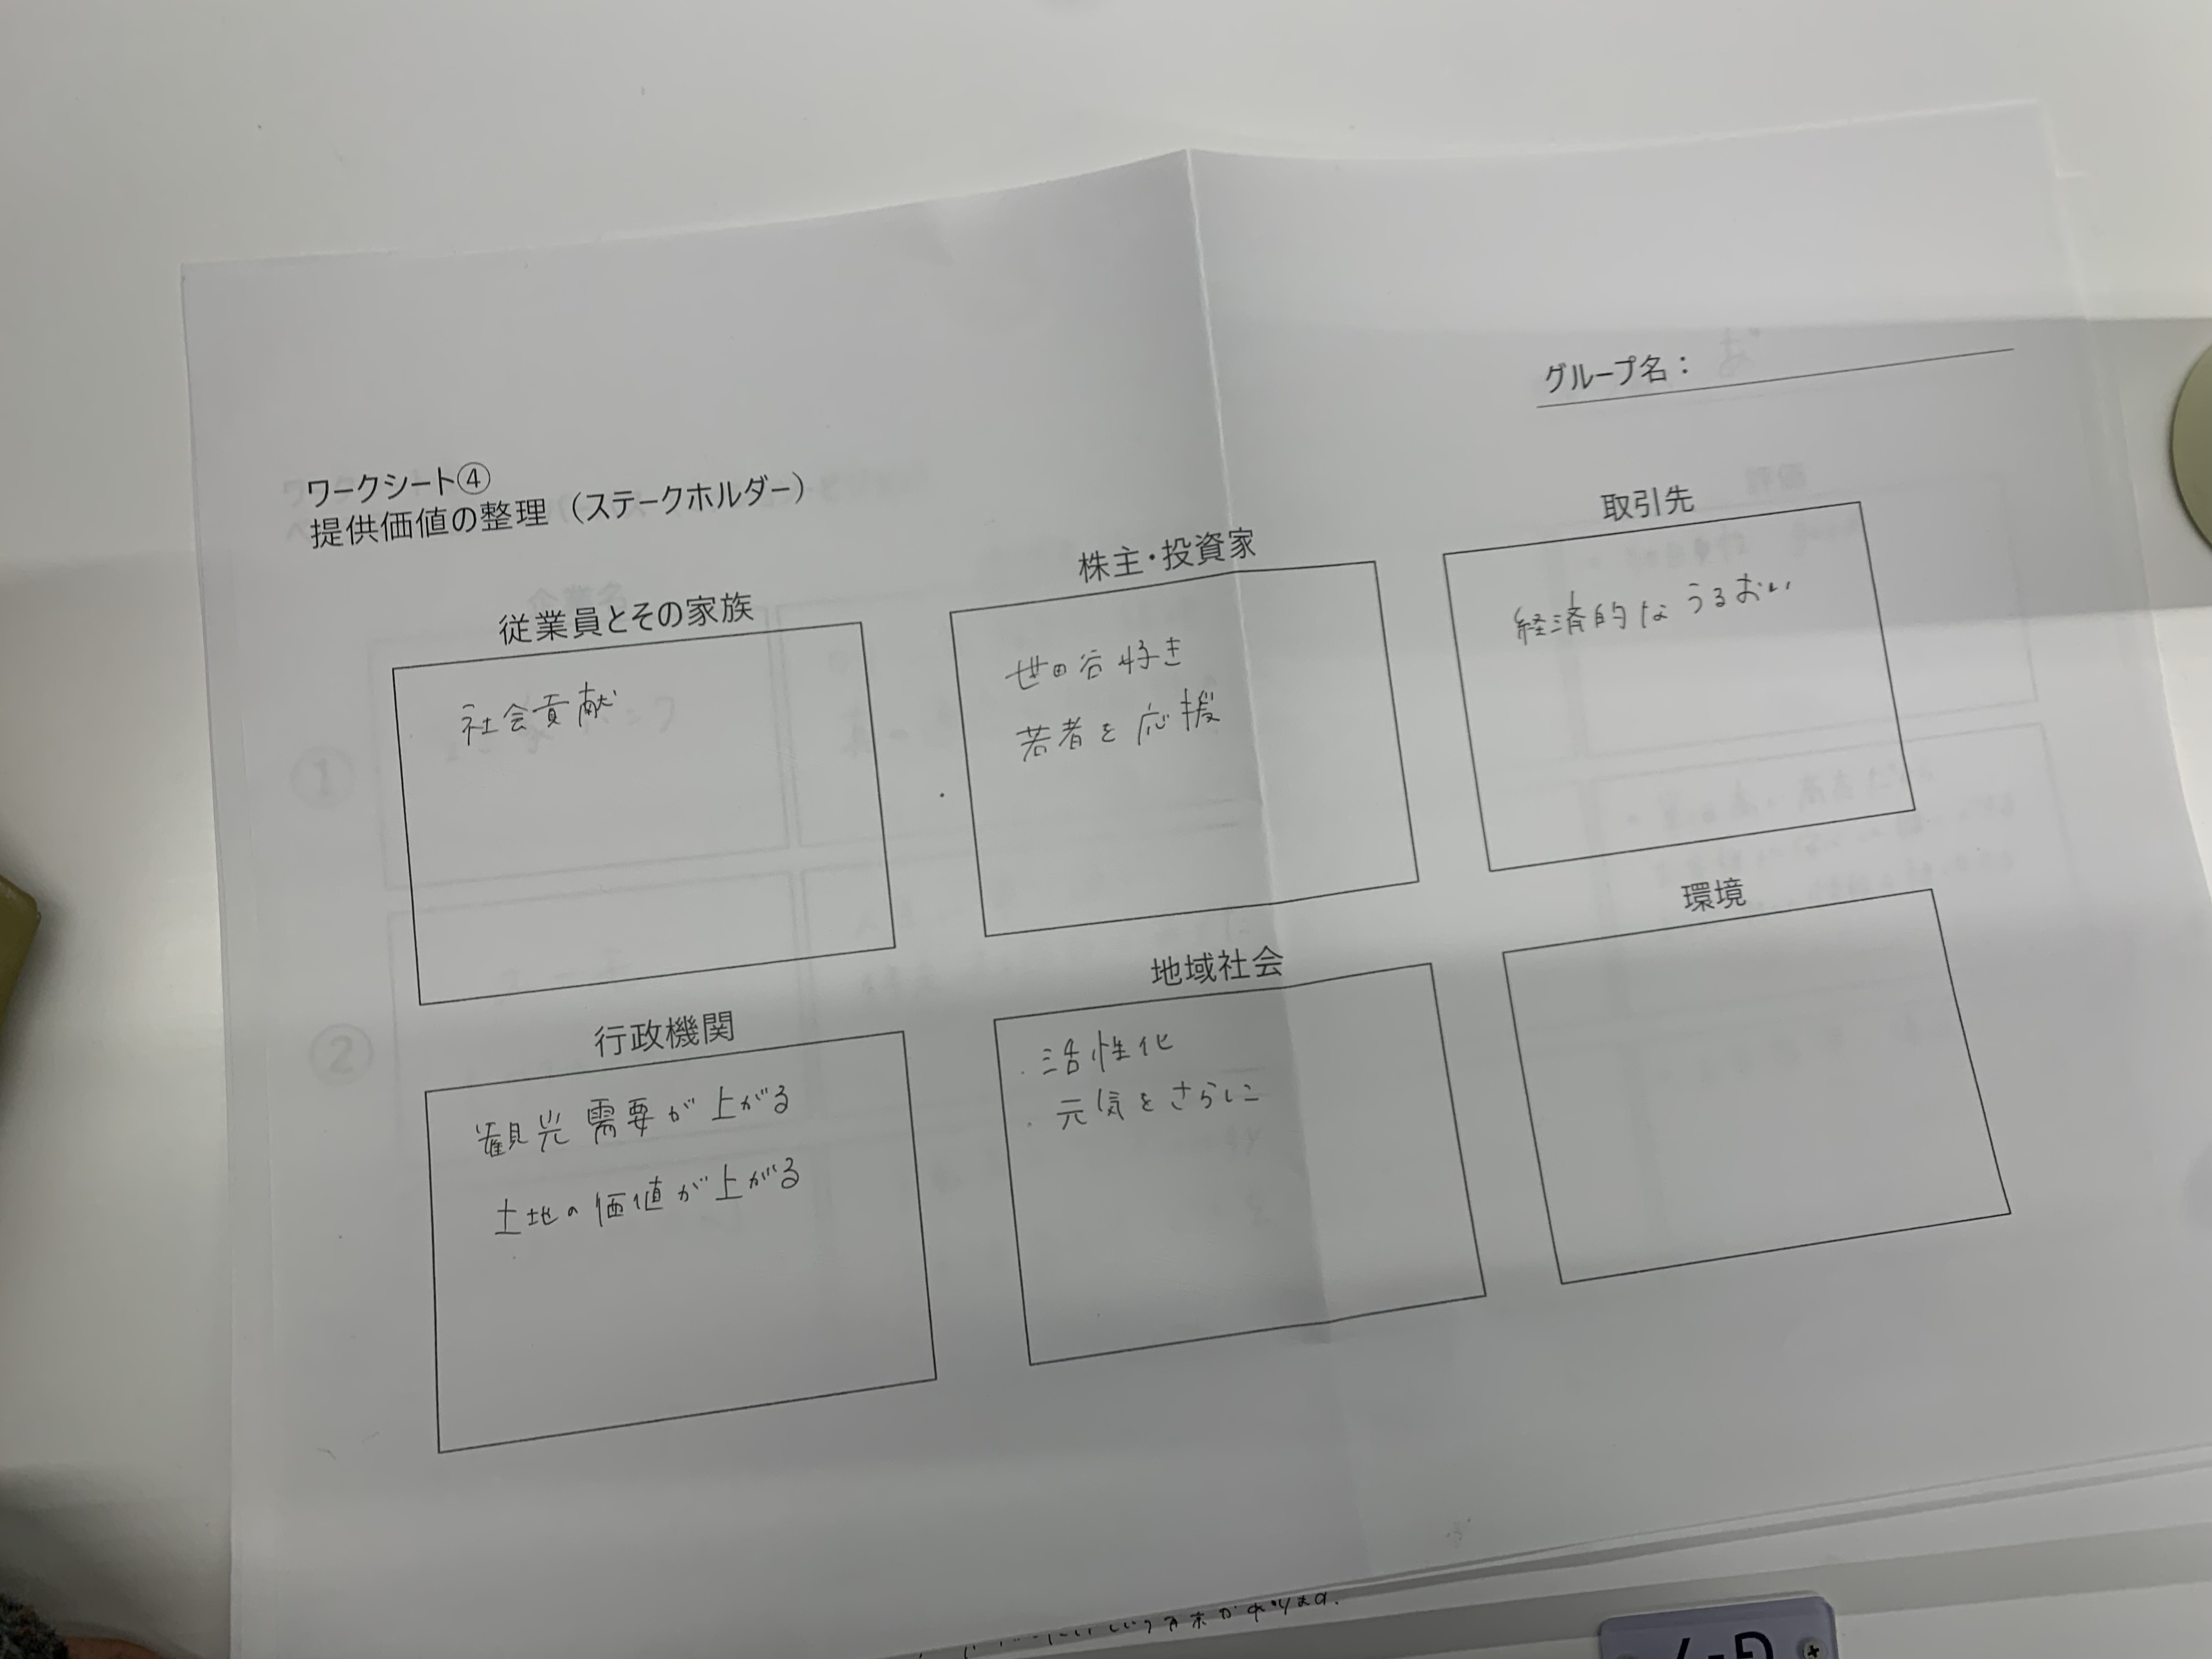 グループ名：
ワークシート④
提供価値の整理（ステークホルダー）
従業員とその家族
社会貢献
株主・投資家
世田谷好き
若者を応援
取引先
経済的なうるおい
行政機関
観光需要が上がる
土地の価値が上がる
地域社会
・活性化
・元気をさらに
環境